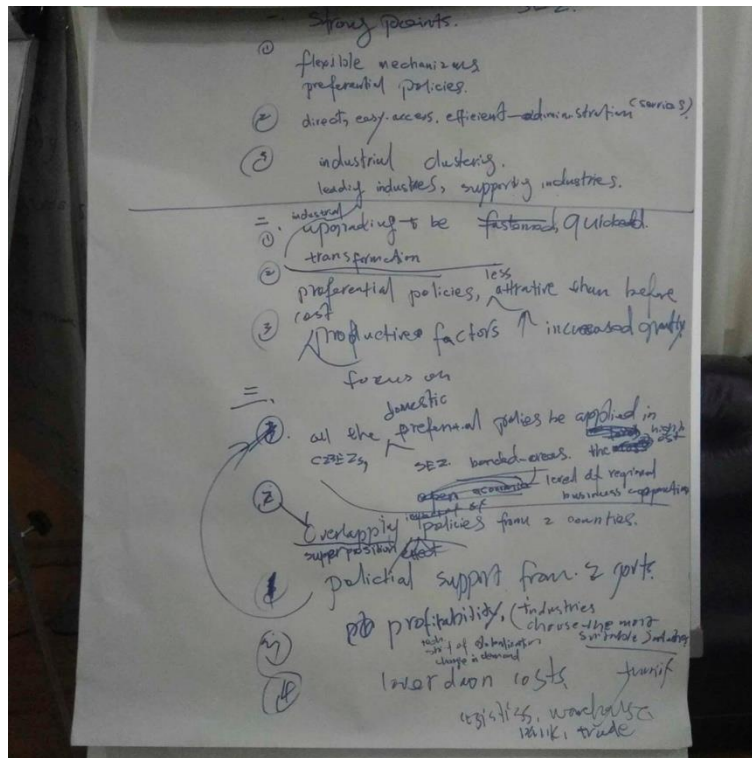 一 SEZ.
Strong points.
① flexible mechanisms
preferential policies.
② direct, easy-access, efficient administration (services)
③ industrial clustering.
leading industries, supporting industries.
二.
① industrial upgrading to be fastened, quickened.
transformation
② preferential policies, less attrative than before
③ cost productive factors ↑ increased greatly
focus on
三.
domestic
all the preferential polies be applied in
CBEZs, SEZ bonded-areas. the highest
level of regional
business cooperation
② Overlapply policies from 2 counties.
superposition effect
1 polictial support from 2 govts.
profitability, (industries
choose the most
suitable industry
change in demand
④ lower down costs
logistics, warehouse
trade